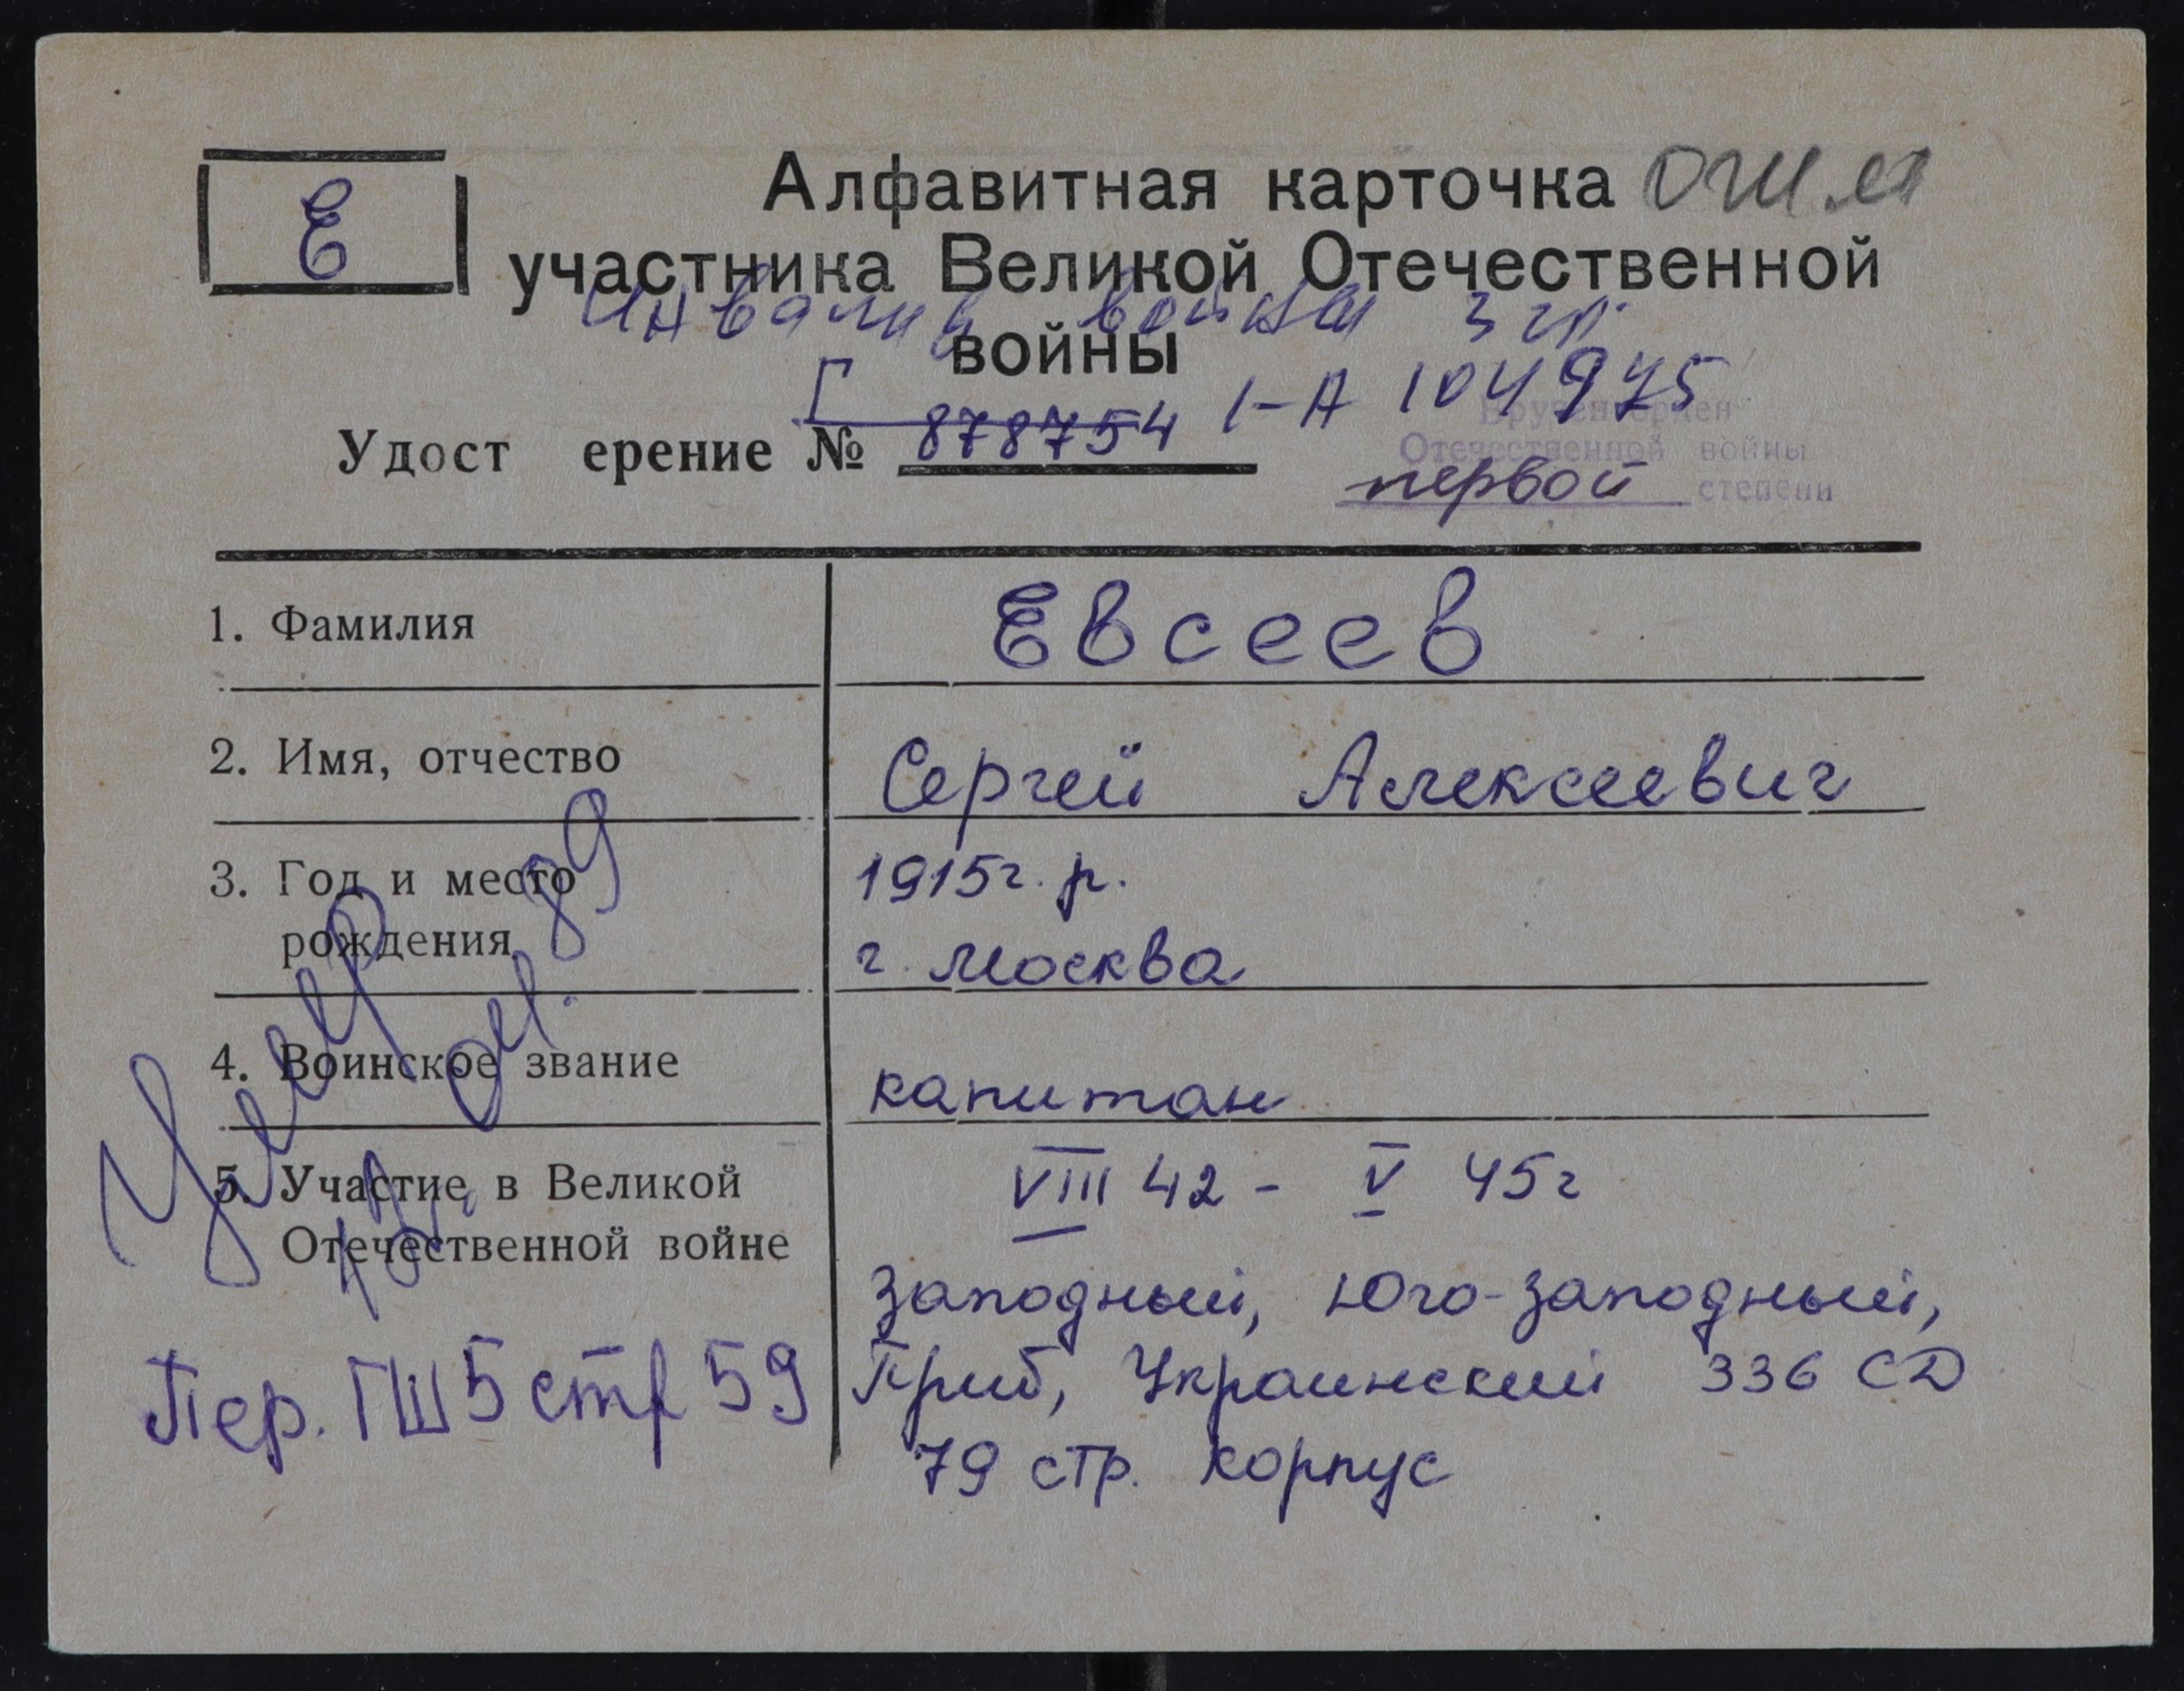 Е
Алфавитная карточка
участника Великой Отечественной
Инвалид войны 3 гр.
войны
Г 1-А 104975
Удост ерение № 878754
Вручен орден
Отечественной войны
первой степени
1. Фамилия Евсеев
2. Имя, отчество Сергей Алексеевич
3. Год и место рождения 1915г. р.
г. Москва
4. Воинское звание капитан
5. Участие в Великой Отечественной войне VIII 42 - V 45г
Западный, Юго-западный,
Приб, Украинский 336 СД
79 стр. корпус
Умер
89
Пер. ГШ 5 стр 59